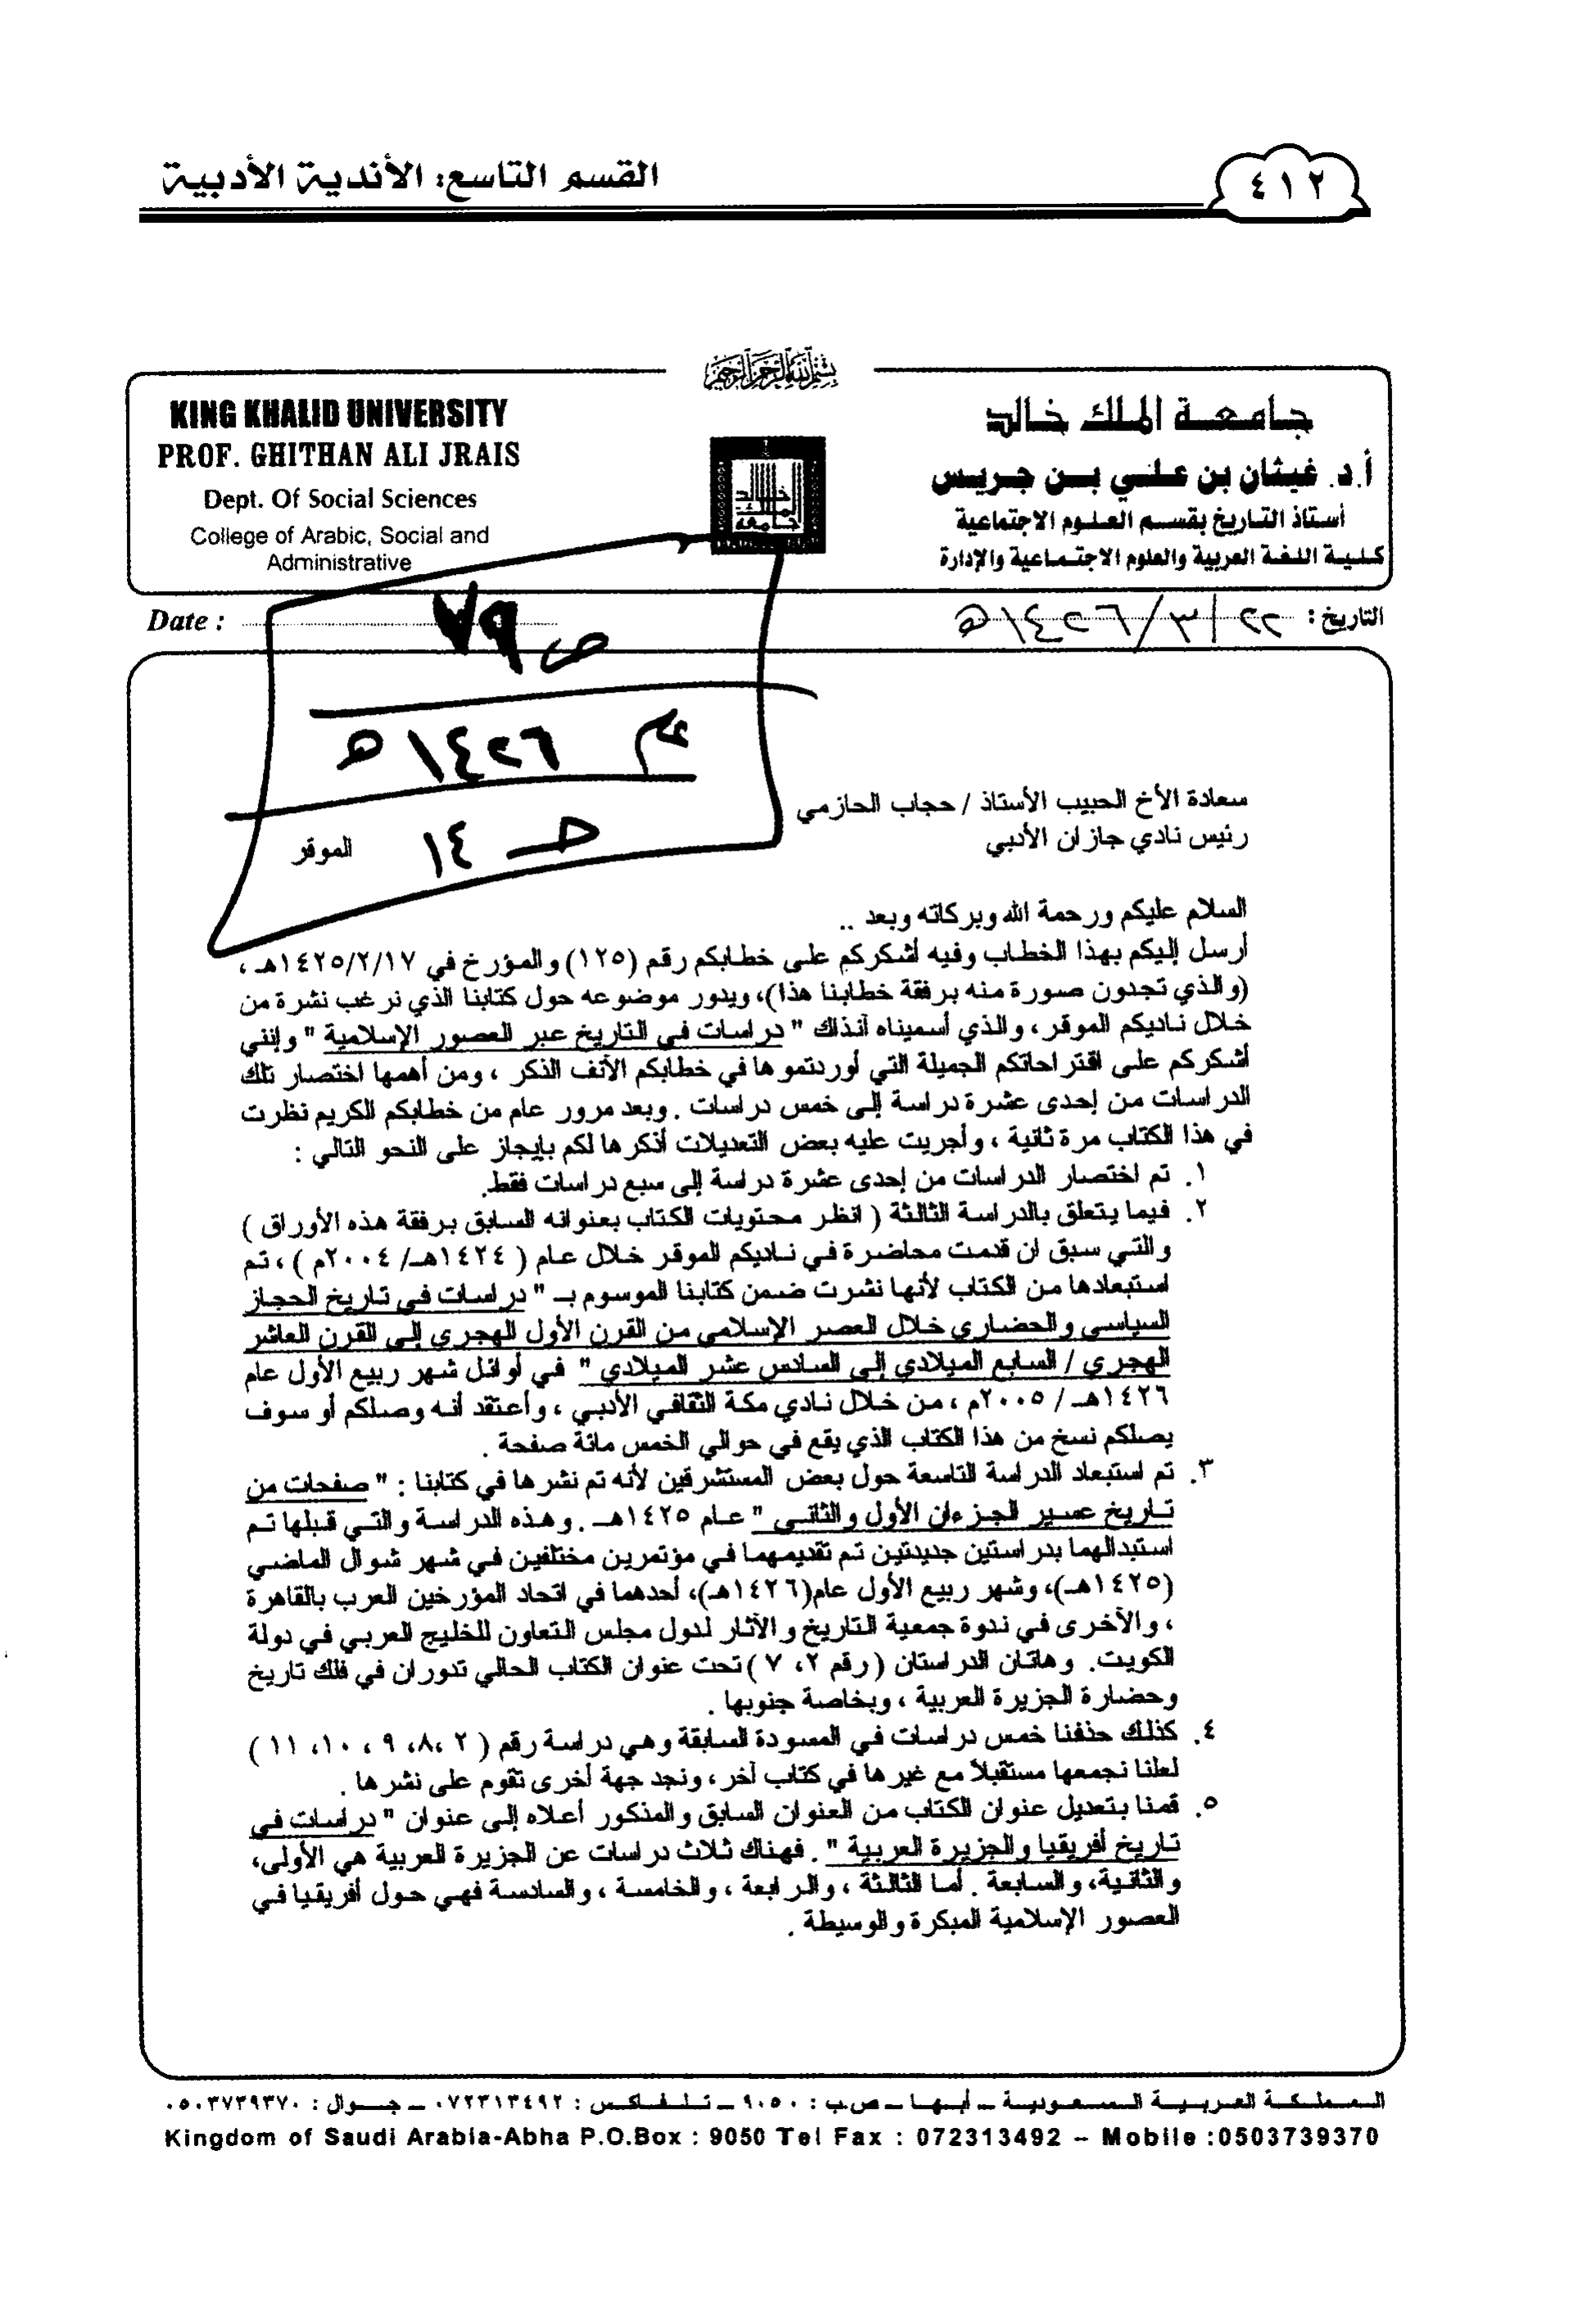 القسم التاسع: الأندية الأدبية
٤١٢
بسم الله الرحمن الرحيم
KING KHALID UNIVERSITY
PROF. GHITHAN ALI JRAIS
Dept. Of Social Sciences
College of Arabic, Social and
Administrative
جامعة الملك خالد
أ.د. غيثان بن علي بن جريس
أستاذ التاريخ بقسم العلوم الاجتماعية
كلية اللغة العربية والعلوم الاجتماعية والإدارة
Date :
التاريخ : ٢٢/٣/١٤٢٦هـ
ص ٧٩
عام ١٤٢٦ هـ
حـ ١٤
سعادة الأخ الحبيب الأستاذ / حجاب الحازمي
رئيس نادي جازان الأدبي الموقر
السلام عليكم ورحمة الله وبركاته وبعد ..
أرسل إليكم بهذا الخطاب وفيه أشكركم على خطابكم رقم (١٢٥) والمؤرخ في ١٤٢٥/٢/١٧هـ ،
(والذي تجدون صورة منه برفقة خطابنا هذا)، ويدور موضوعه حول كتابنا الذي نرغب نشرة من
خلال ناديكم الموقر ، والذي أسميناه آنذاك " دراسات في التاريخ عبر العصور الإسلامية " وإنني
أشكركم على اقتراحاتكم الجميلة التي أوردتموها في خطابكم الآنف الذكر ، ومن أهمها اختصار تلك
الدراسات من إحدى عشرة دراسة إلى خمس دراسات . وبعد مرور عام من خطابكم الكريم نظرت
في هذا الكتاب مرة ثانية ، وأجريت عليه بعض التعديلات أذكرها لكم بإيجاز على النحو التالي :
١. تم اختصار الدراسات من إحدى عشرة دراسة إلى سبع دراسات فقط.
٢. فيما يتعلق بالدراسة الثالثة ( انظر محتويات الكتاب بعنوانه السابق برفقة هذه الأوراق )
والتي سبق ان قدمت محاضرة في ناديكم الموقر خلال عام ( ١٤٢٤هـ/ ٢٠٠٤م ) ، تم
استبعادها من الكتاب لأنها نشرت ضمن كتابنا الموسوم بـ " دراسات في تاريخ الحجاز
السياسي والحضاري خلال العصر الإسلامي من القرن الأول الهجري إلى القرن العاشر
الهجري / السابع الميلادي إلى السادس عشر الميلادي " في أوائل شهر ربيع الأول عام
١٤٢٦هـ / ٢٠٠٥م ، من خلال نادي مكة الثقافي الأدبي ، وأعتقد أنه وصلكم أو سوف
يصلكم نسخ من هذا الكتاب الذي يقع في حوالي الخمس مائة صفحة .
٣. تم استبعاد الدراسة التاسعة حول بعض المستشرقين لأنه تم نشرها في كتابنا : " صفحات من
تاريخ عسير الجزءان الأول والثاني " عام ١٤٢٥هـ . وهذه الدراسة والتي قبلها تم
استبدالهما بدراستين جديدتين تم تقديمهما في مؤتمرين مختلفين في شهر شوال الماضي
(١٤٢٥هـ)، وشهر ربيع الأول عام(١٤٢٦هـ)، أحدهما في اتحاد المؤرخين العرب بالقاهرة
، والآخرى في ندوة جمعية التاريخ والآثار لدول مجلس التعاون للخليج العربي في دولة
الكويت. وهاتان الدراستان (رقم ٢، ٧ ) تحت عنوان الكتاب الحالي تدوران في فلك تاريخ
وحضارة الجزيرة العربية ، وبخاصة جنوبها .
٤. كذلك حذفنا خمس دراسات في المسودة السابقة وهي دراسة رقم ( ٢ ،٨، ٩ ، ١٠، ١١ )
لعلنا نجمعها مستقبلاً مع غيرها في كتاب آخر ، ونجد جهة أخرى تقوم على نشرها .
٥. قمنا بتعديل عنوان الكتاب من العنوان السابق والمذكور أعلاه إلى عنوان " دراسات في
تاريخ أفريقيا والجزيرة العربية " . فهناك ثلاث دراسات عن الجزيرة العربية هي الأولى،
والثانية، والسابعة . أما الثالثة ، والرابعة ، والخامسة ، والسادسة فهي حول أفريقيا في
العصور الإسلامية المبكرة والوسيطة .
المملكة العربية السعودية – أبها – ص.ب : ٩٠٥٠ – تلفاكس : ٠٧٢٣١٣٤٩٢ – جوال : ٠٥٠٣٧٣٩٣٧٠
Kingdom of Saudi Arabia-Abha P.O.Box : 9050 Tel Fax : 072313492 – Mobile :0503739370